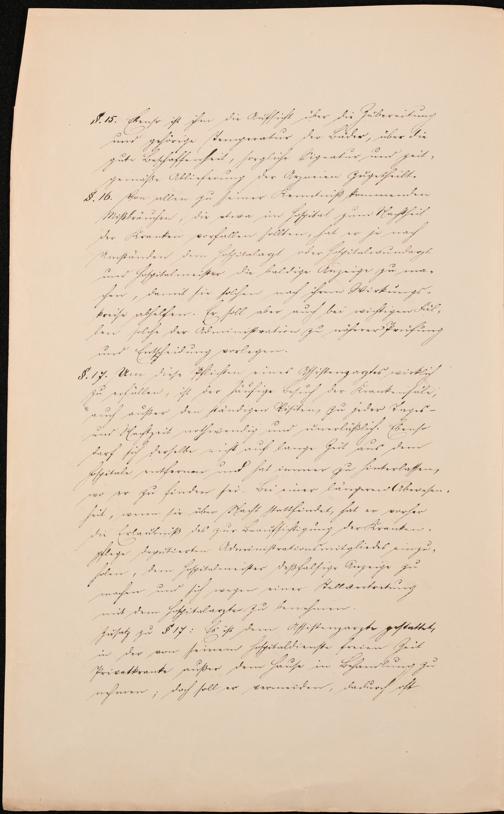 §. 15. Ebenso ist ihm die Aufsicht über die Zubereitung
und gehörige Temperatur der Bäder, über die
gute Beschaffenheit, sorgliche Signatur und zeit-
gemäße Ablieferung der Arzneien zugetheilt.
§. 16. Von allen zu seiner Kenntniß kommenden
Mißbräuchen, die etwa im Hospital zum Nachtheil
der Kranken vorfallen sollten, hat er je nach
Umständen dem Hospitalarzt oder Hospitalwundarzt
und Hospitalmeister die baldige Anzeige zu ma-
chen, damit sie solchen nach ihrem Wirkungs-
kreise abhelfen. Er soll aber auch bei wichtigen Fäl-
len solche der Administration zu näherer Prüfung
und Entscheidung vorlegen.
§. 17. Um diese Pflichten eines Assistenzarztes wirklich
zu erfüllen, ist der häufige Besuch der Krankensäle,
auch außer den ständigen Visiten, zu jeder Tages-
und Nachtzeit nothwendig und unerläßlich. Ebenso
darf sich derselbe nicht auf lange Zeit aus dem
Hospitale entfernen und hat immer zu hinterlassen,
wo er zu finden sei. Bei einer längeren Abwesen-
heit, wenn sie über Nacht stattfindet, hat er vorher
die Erlaubniß des zur Beaufsichtigung der Kranken-
pflege deputierten Administrationsmitgliedes einzu-
holen, dem Hospitalmeister deßfalsige Anzeige zu
machen und sich wegen einer Stellvertretung
mit dem Hospitalarzte zu benehmen.
Zusatz zu § 17: Es ist dem Assistenzarzte gestattet,
in der von seinem Hospitaldienste freien Zeit
Privatkranke außer dem Hause in Behandlung zu
nehmen; doch soll er vermeiden, dadurch oft